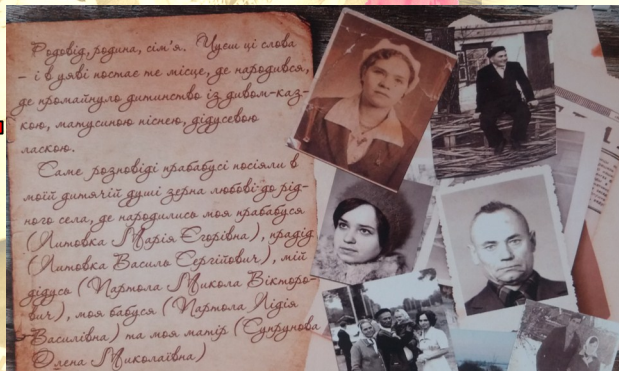 Родовід, родина, сім'я. Чуєш ці слова
– і в уяві постає те місце, де народився,
де промайнуло дитинство із дивом-каз-
кою, матусиною піснею, дідусевою
ласкою.
Саме розповіді прабабусі посіяли в
моїй дитячій душі зерна любові до рід-
ного села, де народились моя прабабуся
(Литовка Марія Єгорівна), прадід
(Литовка Василь Сергійович), мій
дідусь (Партола Микола Вікторо-
вич), моя бабуся (Партола Лідія
Василівна) та моя матір (Супрунова
Олена Миколаївна)